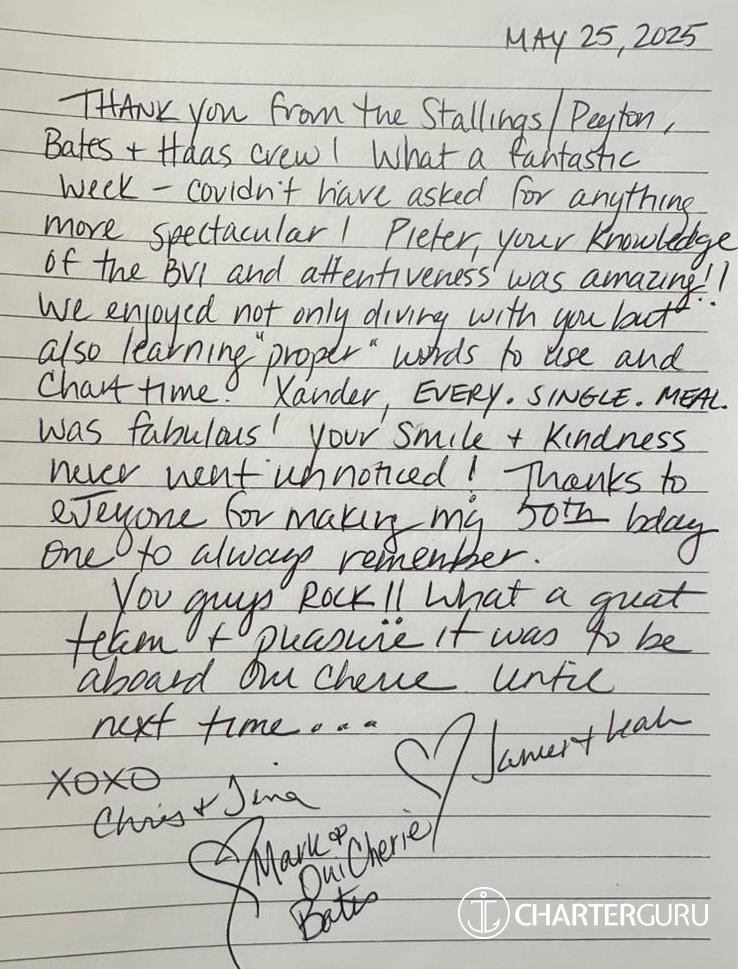 MAY 25, 2025
THANK you from the Stallings/Peyton,
Bates + Haas crew! What a fantastic
week - couldn't have asked for anything
more spectacular! Pieter, your knowledge
of the BVI and attentiveness was amazing!!
We enjoyed not only diving with you but
also learning "proper" words to use and
Chart time! Xander, EVERY. SINGLE. MEAL.
was fabulous! Your smile + kindness
never went unnoticed! Thanks to
everyone for making my 50th bday
one to always remember.
You guys ROCK!! What a great
team + pleasure it was to be
aboard Oui Cherie until
next time...
James + Leah
XOXO
Chris + Jina
Mark &
Oui Cherie
Bates
CHARTERGURU